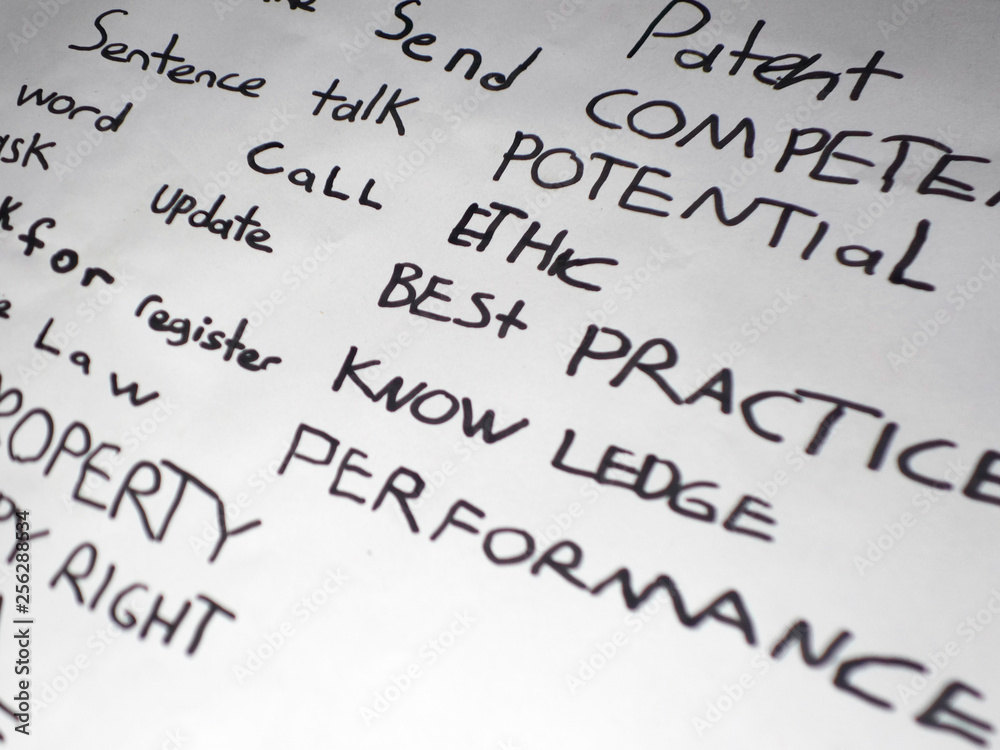 Send Patent
Sentence talk COMPETE
word CaLL POTENTIaL
ask update ETHIC
for register BESt PRACTICE
Law KNOWLEDGE
PROPERTY PERFORMANCE
RIGHT
Adobe Stock | #256288534